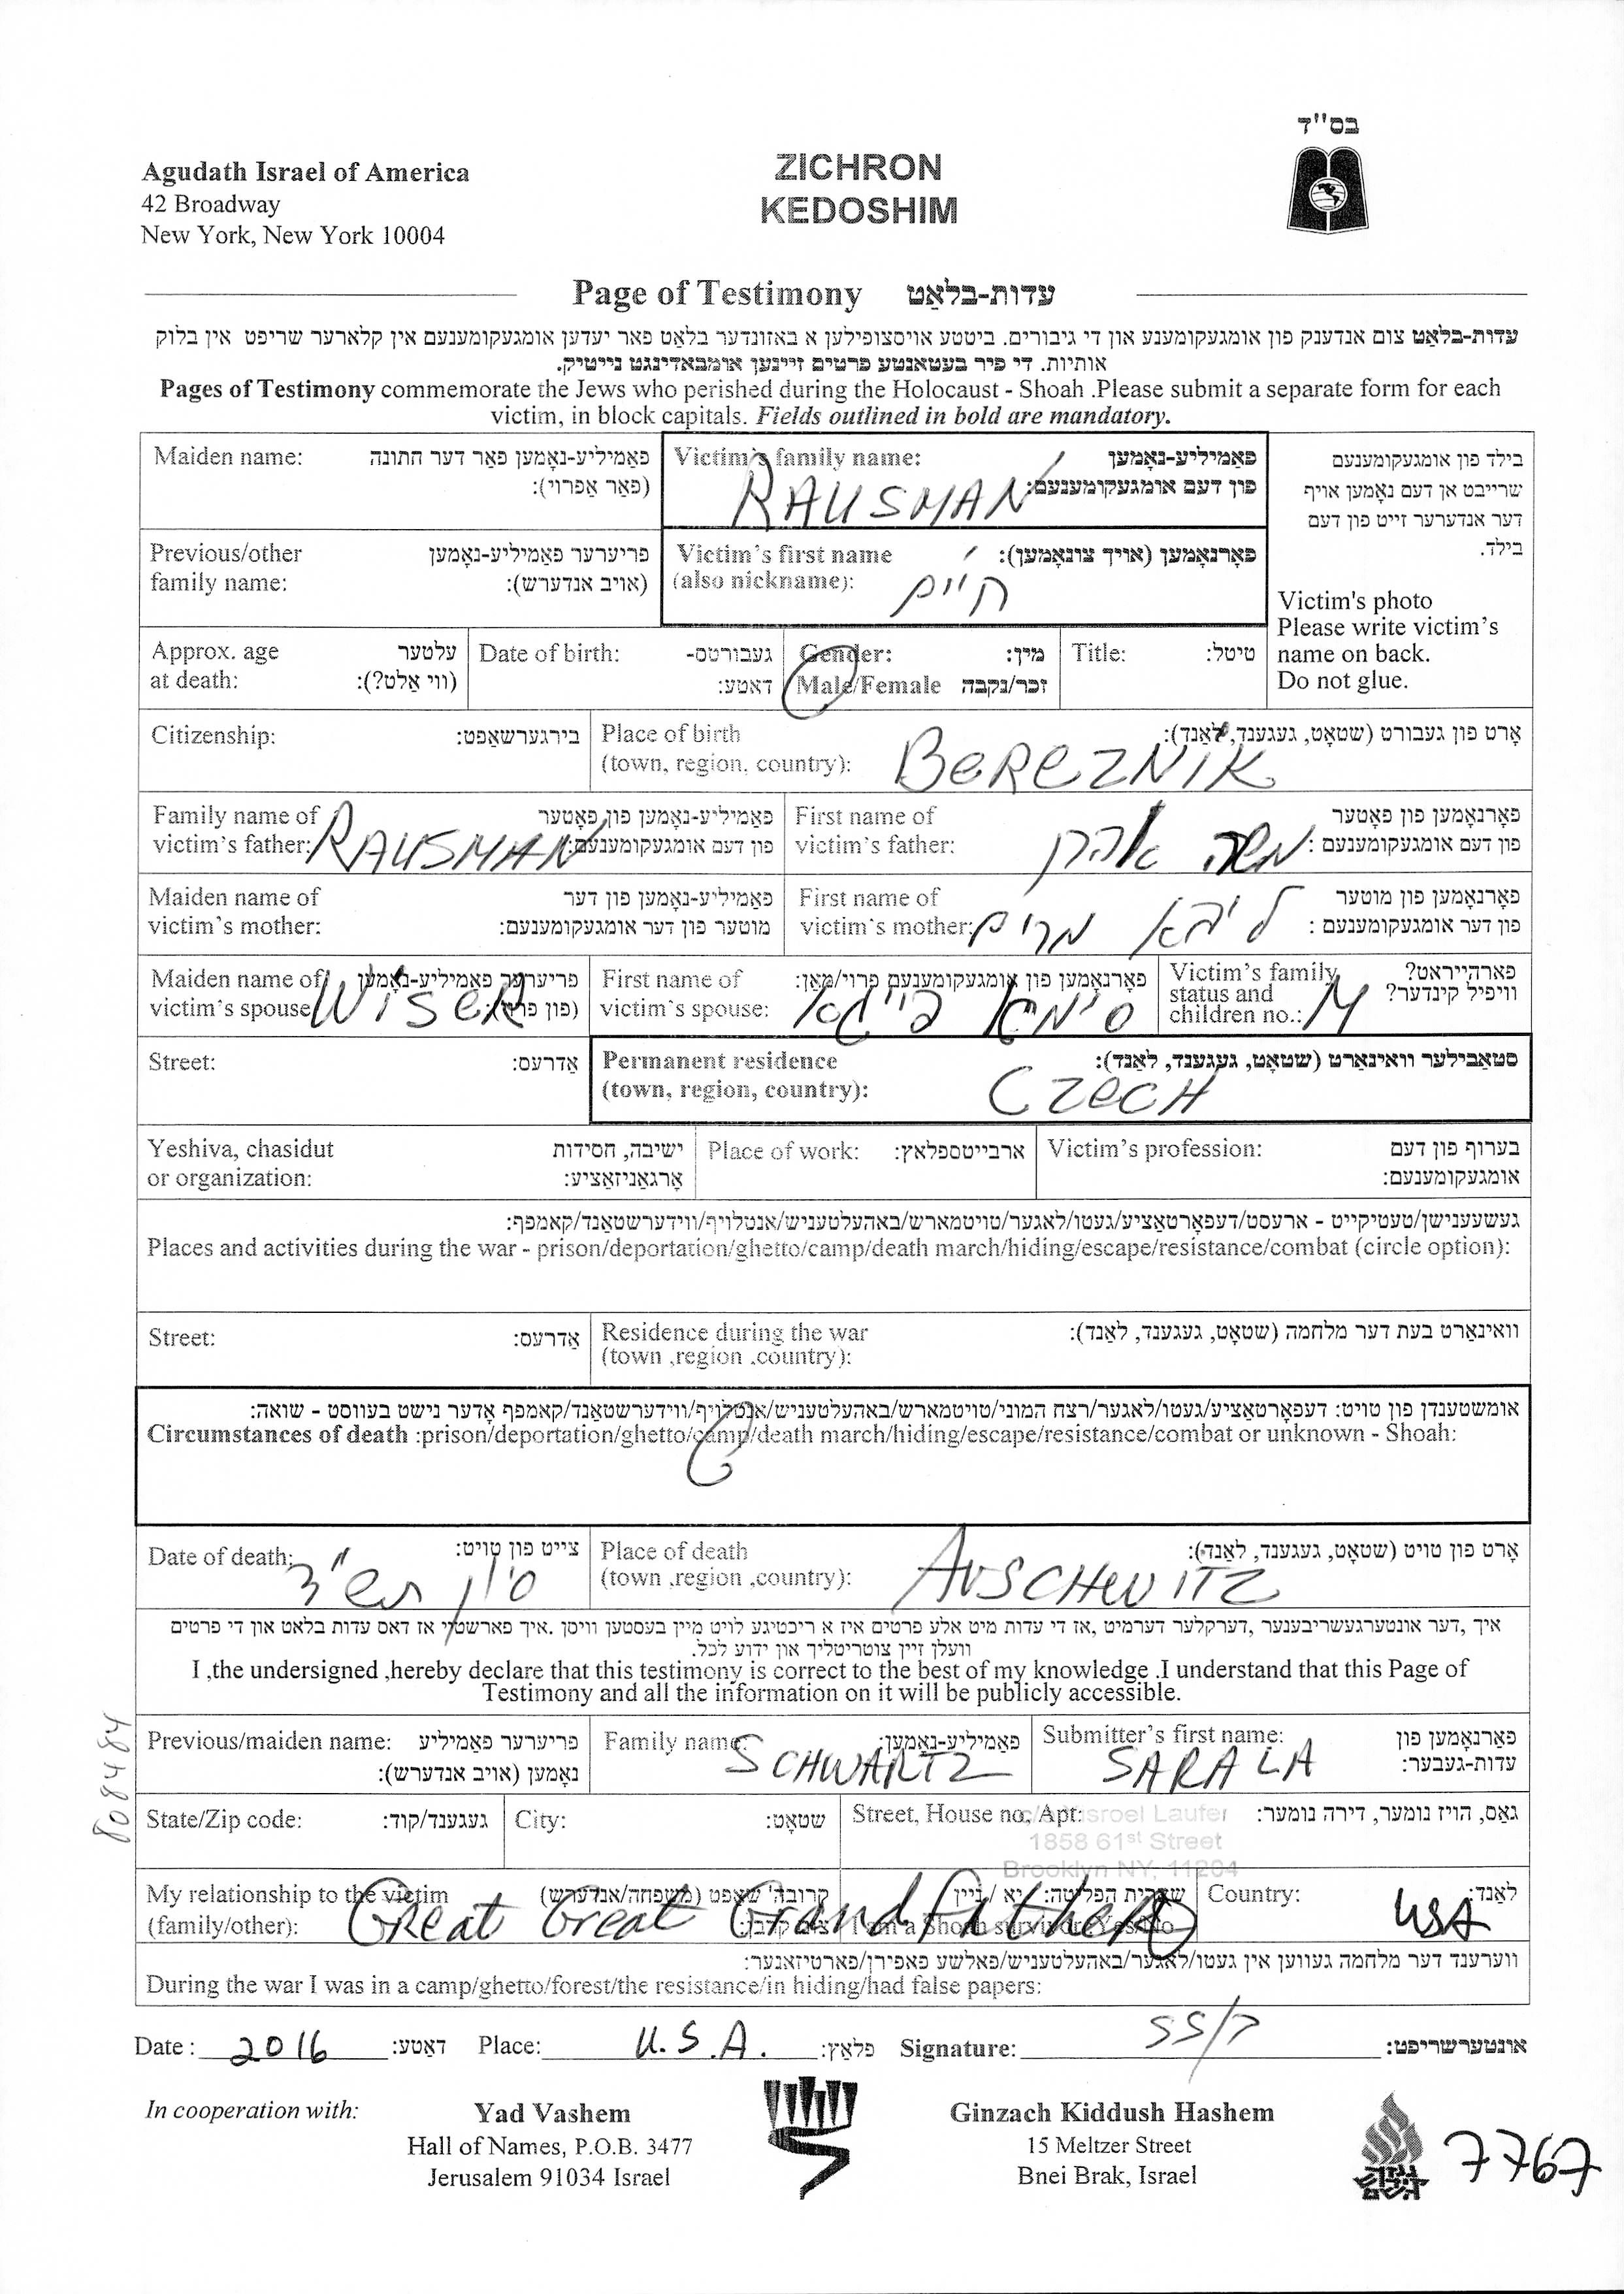 בס"ד
Agudath Israel of America
42 Broadway
New York, New York 10004
ZICHRON
KEDOSHIM
Page of Testimony עדות-בלאַט
עדות-בלאַט צום אנדענק פון אומגעקומענע און די גיבורים. ביטטע אויסצופילען א באזונדער בלאַט פאר יעדען אומגעקומענעם אין קלארער שריפט אין בלוק
אותיות. די פיר בעטאנטע פרטים זיינען אומבאדינגט נייטיק.
Pages of Testimony commemorate the Jews who perished during the Holocaust - Shoah .Please submit a separate form for each
victim, in block capitals. Fields outlined in bold are mandatory.
Maiden name: פאַמיליע-נאָמען פאר דער חתונה
(פאר אפרוי):
Victim's family name: פאַמיליע-נאָמען
פון דעם אומגעקומענעם:
RAUSMAN
בילד פון אומגעקומענעם
שרייבט אן דעם נאָמען אויף
דער אנדערער זייט פון דעם
בילד.
Victim's photo
Please write victim's
name on back.
Do not glue.
Previous/other פריערער פאַמיליע-נאָמען
family name: (אויב אנדערש):
Victim's first name פאָרנאָמען (אויך צונאָמען):
(also nickname):
חיים
Approx. age עלטער
at death: (ווי אַלט?):
Date of birth: געבורטס-
דאטע:
Gender: מין:
Male/Female זכר/נקבה
Title: טיטל:
Citizenship: בירגערשאַפט:
Place of birth אָרט פון געבורט (שטאָט, געגענד, לאַנד):
(town, region, country):
BEREZNIK
Family name of פאַמיליע-נאָמען פון פאָטער
victim's father: פון דעם אומגעקומענעם:
RAUSMAN
First name of פאָרנאָמען פון פאָטער
victim's father: פון דעם אומגעקומענעם:
משה אהרן
Maiden name of פאַמיליע-נאָמען פון דער
victim's mother: מוטער פון דער אומגעקומענעם:
First name of פאָרנאָמען פון מוטער
victim's mother: פון דער אומגעקומענעם :
ליבא מרים
Maiden name of פריערער פאַמיליע-נאָמען
victim's spouse
WiSER
First name of פאָרנאָמען פון אומגעקומענעם פרוי/מאַן:
victim's spouse:
סימא פייגא
Victim's family פארהייראט?
status and וויפיל קינדער?
children no.:
M
Street: אַדרעס:
Permanent residence סטאַבילער וואינאָרט (שטאָט, געגענד, לאַנד):
(town, region, country):
CZECH
Yeshiva, chasidut ישיבה, חסידות
or organization: אָרגאַניזאַציע:
Place of work: ארבייטספלאץ:
Victim's profession: בערוף פון דעם
אומגעקומענעם:
געשעענישן/טעטיקייט - ארעסט/דעפאָרטאַציע/געטו/לאגער/טויטמארש/באהעלטעניש/אנטלויף/ווידערשטאַנד/קאמפף:
Places and activities during the war - prison/deportation/ghetto/camp/death march/hiding/escape/resistance/combat (circle option):
Street: אַדרעס:
Residence during the war וואינארט בעת דער מלחמה (שטאָט, געגענד, לאַנד):
(town ,region .country):
אומשטענדן פון טויט: דעפאָרטאַציע/געטו/לאגער/רצח המוני/טויטמארש/באהעלטעניש/אנטלויף/ווידערשטאַנד/קאמפף אָדער נישט בעוואוסט - שואה:
Circumstances of death :prison/deportation/ghetto/camp/death march/hiding/escape/resistance/combat or unknown - Shoah:
Date of death: צייט פון טויט:
סיון תש"ד
Place of death אָרט פון טויט (שטאָט, געגענד, לאַנד):
(town ,region ,country):
AUSCHWITZ
איך ,דער אונטערגעשריבענער ,דערקלער דערמיט ,אז די עדות מיט אלע פרטים איז א ריכטיגע לויט מיין בעסטען וויסן .איך פארשטיי אז דאס עדות בלאט און די פרטים
וועלן זיין צוטריטליך און ידוע לכל.
I ,the undersigned ,hereby declare that this testimony is correct to the best of my knowledge .I understand that this Page of
Testimony and all the information on it will be publicly accessible.
8084484
Previous/maiden name: פריערער פאַמיליע
נאָמען (אויב אנדערש):
Family name: פאַמיליע-נאָמען:
SCHWARTZ
Submitter's first name: פאָרנאָמען פון
עדות-געבער:
SARALA
State/Zip code: געגענד/קוד:
City: שטאָט:
Street, House no, Apt: גאַס, הויז נומער, דירה נומער:
Isroel Laufer
1858 61st Street
Brooklyn NY. 11204
My relationship to the victim
(family/other):
Great Great Grandfather
I am a Shoah survivor: Yes/No
Country: לאַנד:
USA
ווערענד דער מלחמה געווען אין געטו/לאַגער/באהעלטעניש/פאלשע פאפירן/פארטיזאנער:
During the war I was in a camp/ghetto/forest/the resistance/in hiding/had false papers:
Date : 2016 דאַטע: Place: U.S.A. פלאַץ: Signature: אונטערשריפט:
In cooperation with:
Yad Vashem
Hall of Names, P.O.B. 3477
Jerusalem 91034 Israel
Ginzach Kiddush Hashem
15 Meltzer Street
Bnei Brak, Israel
7767